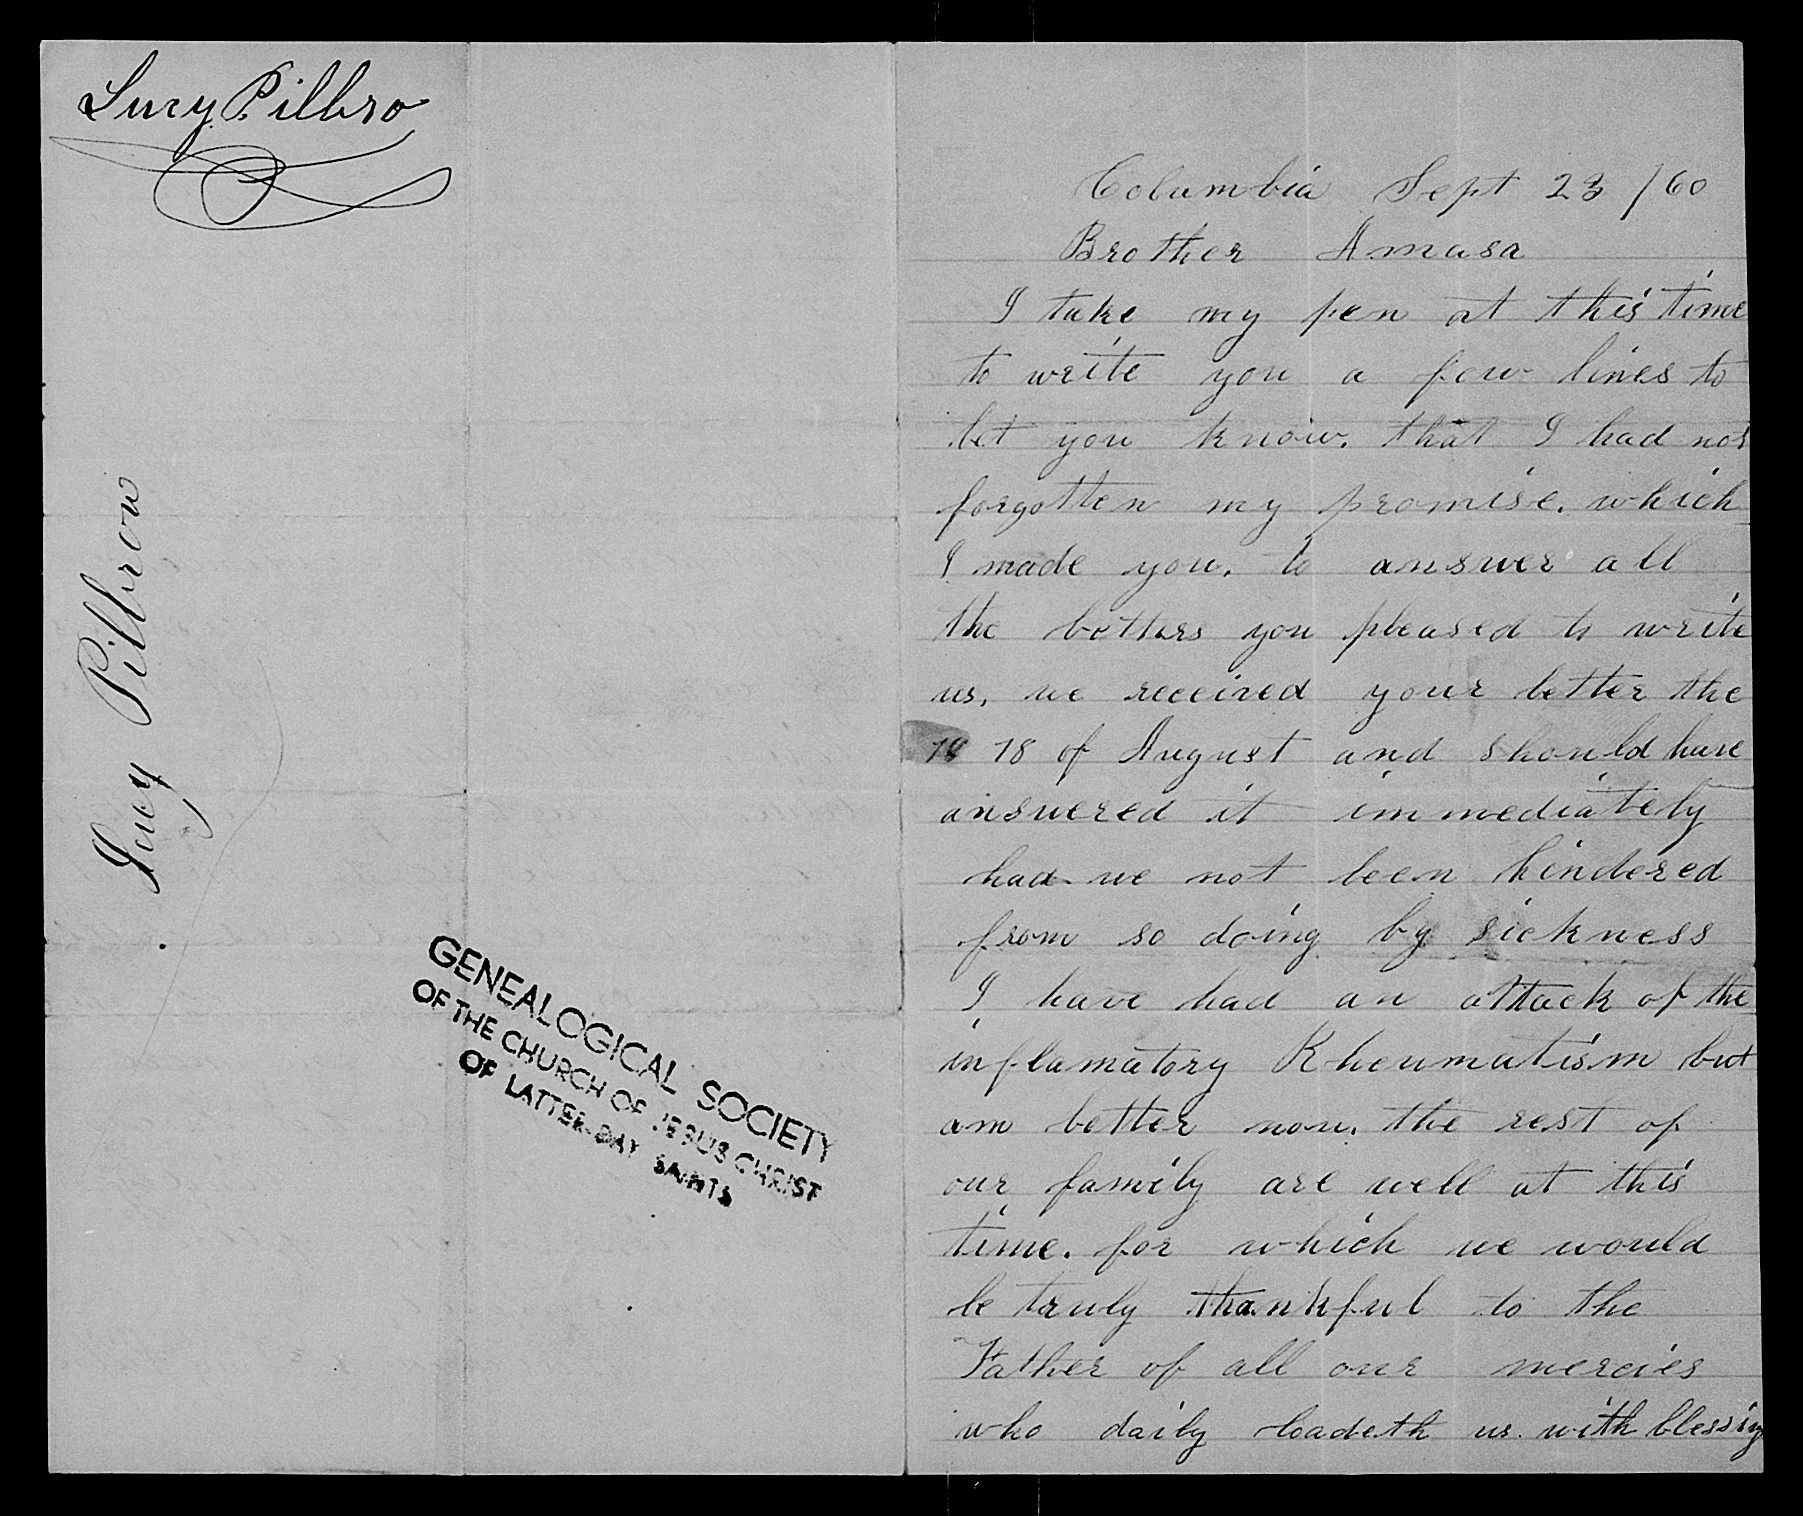 Lucy Pilbro
Lucy Pilbrow
GENEALOGICAL SOCIETY
OF THE CHURCH OF JESUS CHRIST
OF LATTER-DAY SAINTS
Columbia Sept 23 /60
Brother Amasa
I take my pen at this time
to write you a few lines to
let you know. that I had not
forgotten my promise. which
I made you. to answer all
the letters you pleased to write
us. we received your letter the
18 18 of August and should have
answered it immediately
had we not been hindered
from so doing by sickness
I have had an attack of the
inflamatory Rheumatism but
am better now. the rest of
our family are well at this
time. for which we would
be truly thankful to the
Father of all our mercies
who daily loadeth us with blessing